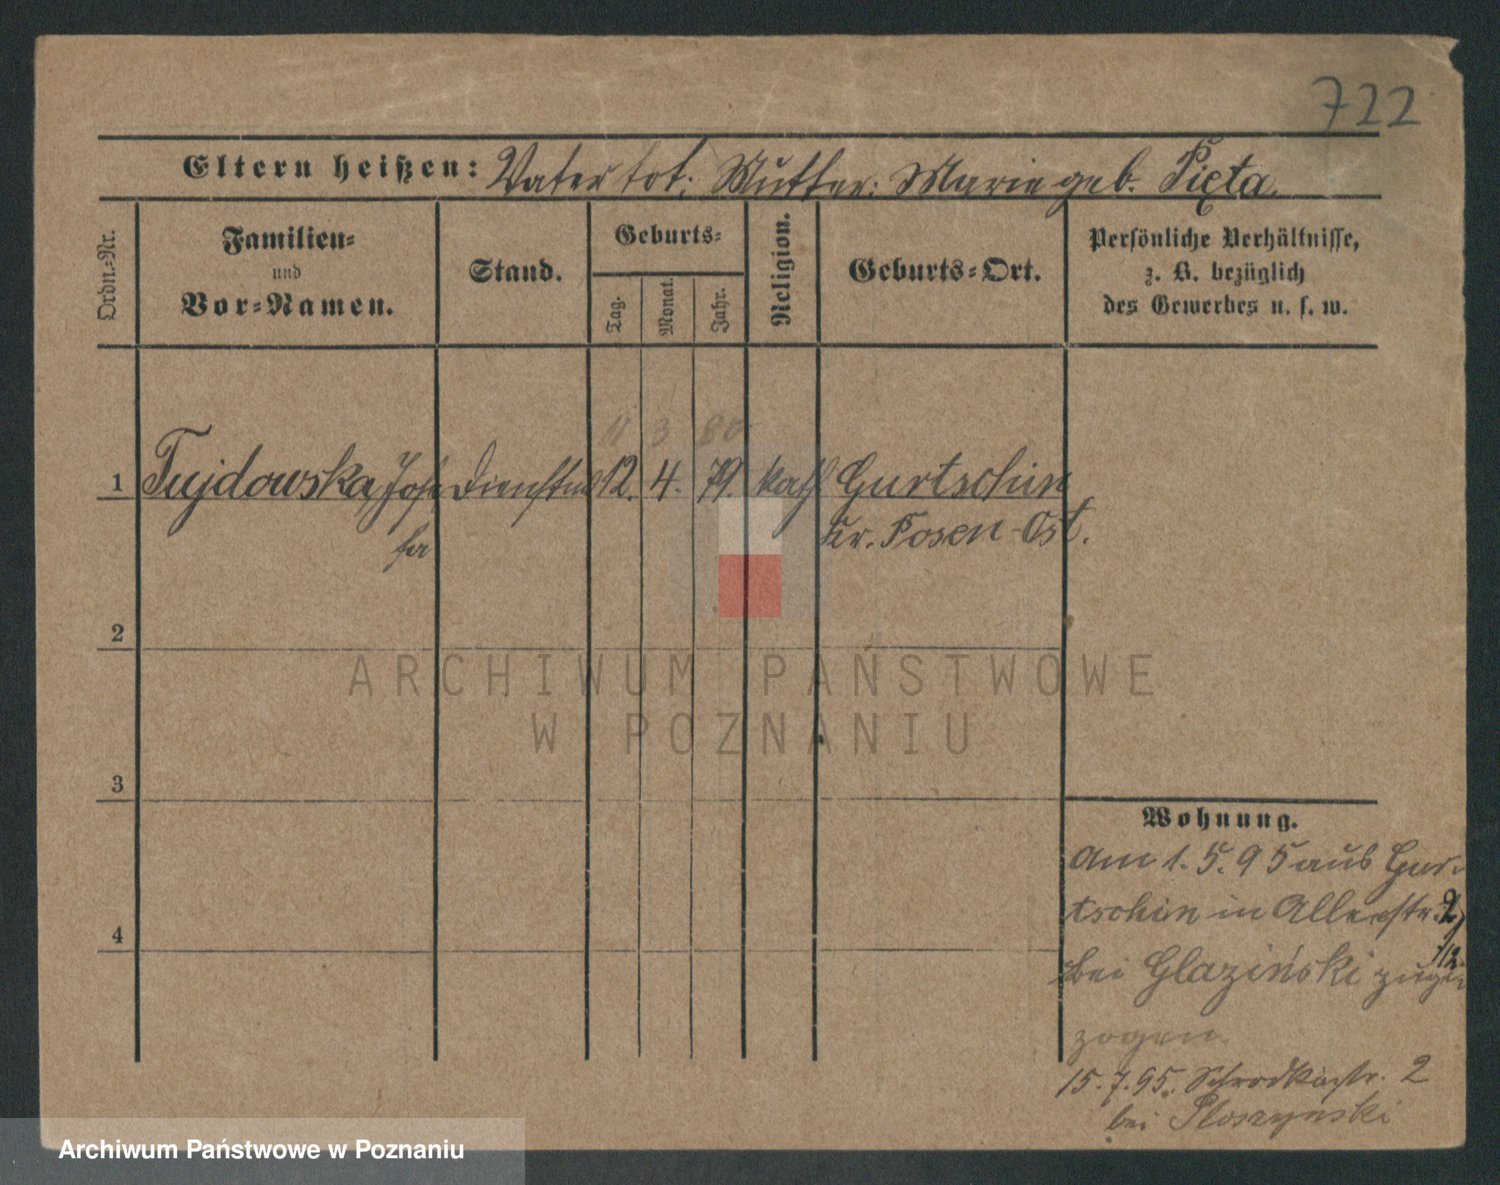 722
Eltern heißen: Vater tot; Mutter: Marie geb. Pięta.
Ordn.-Nr.
Familien- und Vor-Namen.
Stand.
Geburts-
Tag.
Monat.
Jahr.
Religion.
Geburts-Ort.
Persönliche Verhältnisse,
z. B. bezüglich
des Gewerbes u. s. w.
11 3 80
1 Tujdowska, Josefa Dienstm 12. 4. 79. kath Gurtschin
Kr. Posen-Ost.
2
3
4
Wohnung.
Am 1. 5. 95 aus Gur-
tschin in Allerstr. 2
bei Glaziński
zogen.
15. 7. 95. Schrodkastr. 2
bei Ploszynski
ARCHIWUM PAŃSTWOWE
W POZNANIU
Archiwum Państwowe w Poznaniu